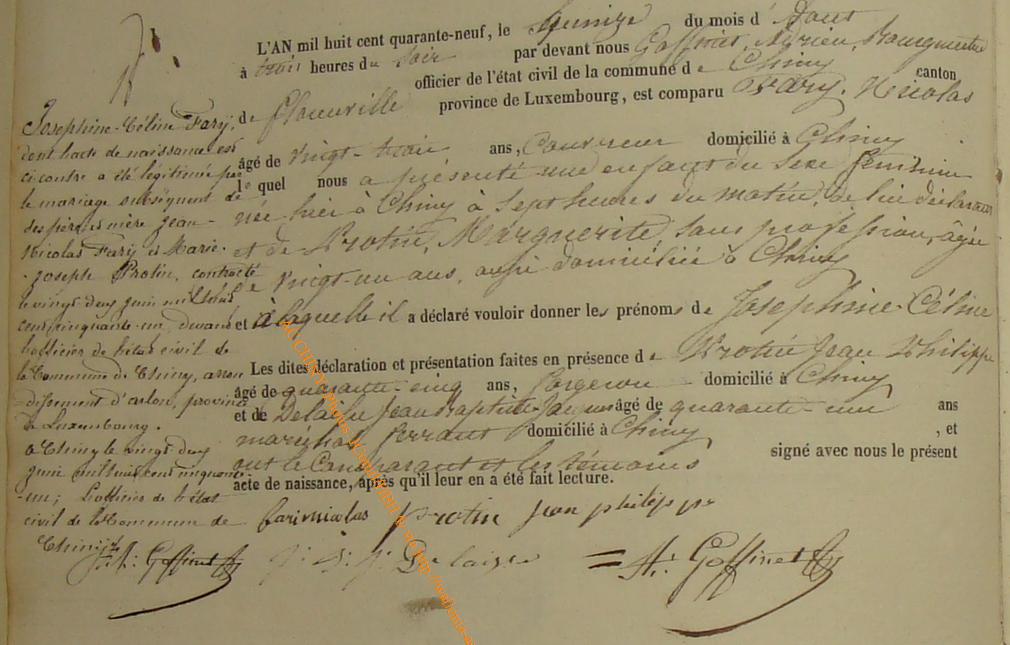 L'AN mil huit cent quarante-neuf, le quinze du mois d'Aout
à trois heures du soir par devant nous Goffinet, Adrien, Bourgmestre
officier de l'état civil de la commune de Chiny canton
de Florenville province de Luxembourg, est comparu Fary, Nicolas
âgé de vingt-trois ans, Couvreur domicilié à Chiny
lequel nous a présenté une enfant du sexe féminin
née hier à Chiny à sept heures du matin, de lui déclarant
et de Protin, Marguerite, sans profession, âgée
de vingt-un ans, aussi domiciliée à Chiny
et à laquelle il a déclaré vouloir donner les prénoms de Josephine-Céline
Les dites déclaration et présentation faites en présence de Protin Jean Philippe
âgé de quarante-cinq ans, forgeron domicilié à Chiny
et de Delaisse Jean Baptiste Jacques âgé de quarante-un ans
maréchal ferrant domicilié à Chiny, et
ont le Comparant et les témoins signé avec nous le présent
acte de naissance, après qu'il leur en a été fait lecture.
Josephine-Céline Fary,
dont l'acte de naissance est
ci contre a été legitimée par
le mariage subséquent de
ses père et mère Jean-
Nicolas Fary et Marie-
Joseph Protin, contracté
le vingt deux juin mil huit
cent cinquante-un, devant
l'officier de l'état civil de
la Commune de Chiny, arron
-dissement d'arlon, province
de Luxembourg.
a Chiny le vingt deux
juin mil huit cent cinquante-
-un; L'officier de l'état
civil de la Commune de
Chiny
A: Goffinet
fari nicolas protin jean philippe
J. B. J. Delaisse
A: Goffinet